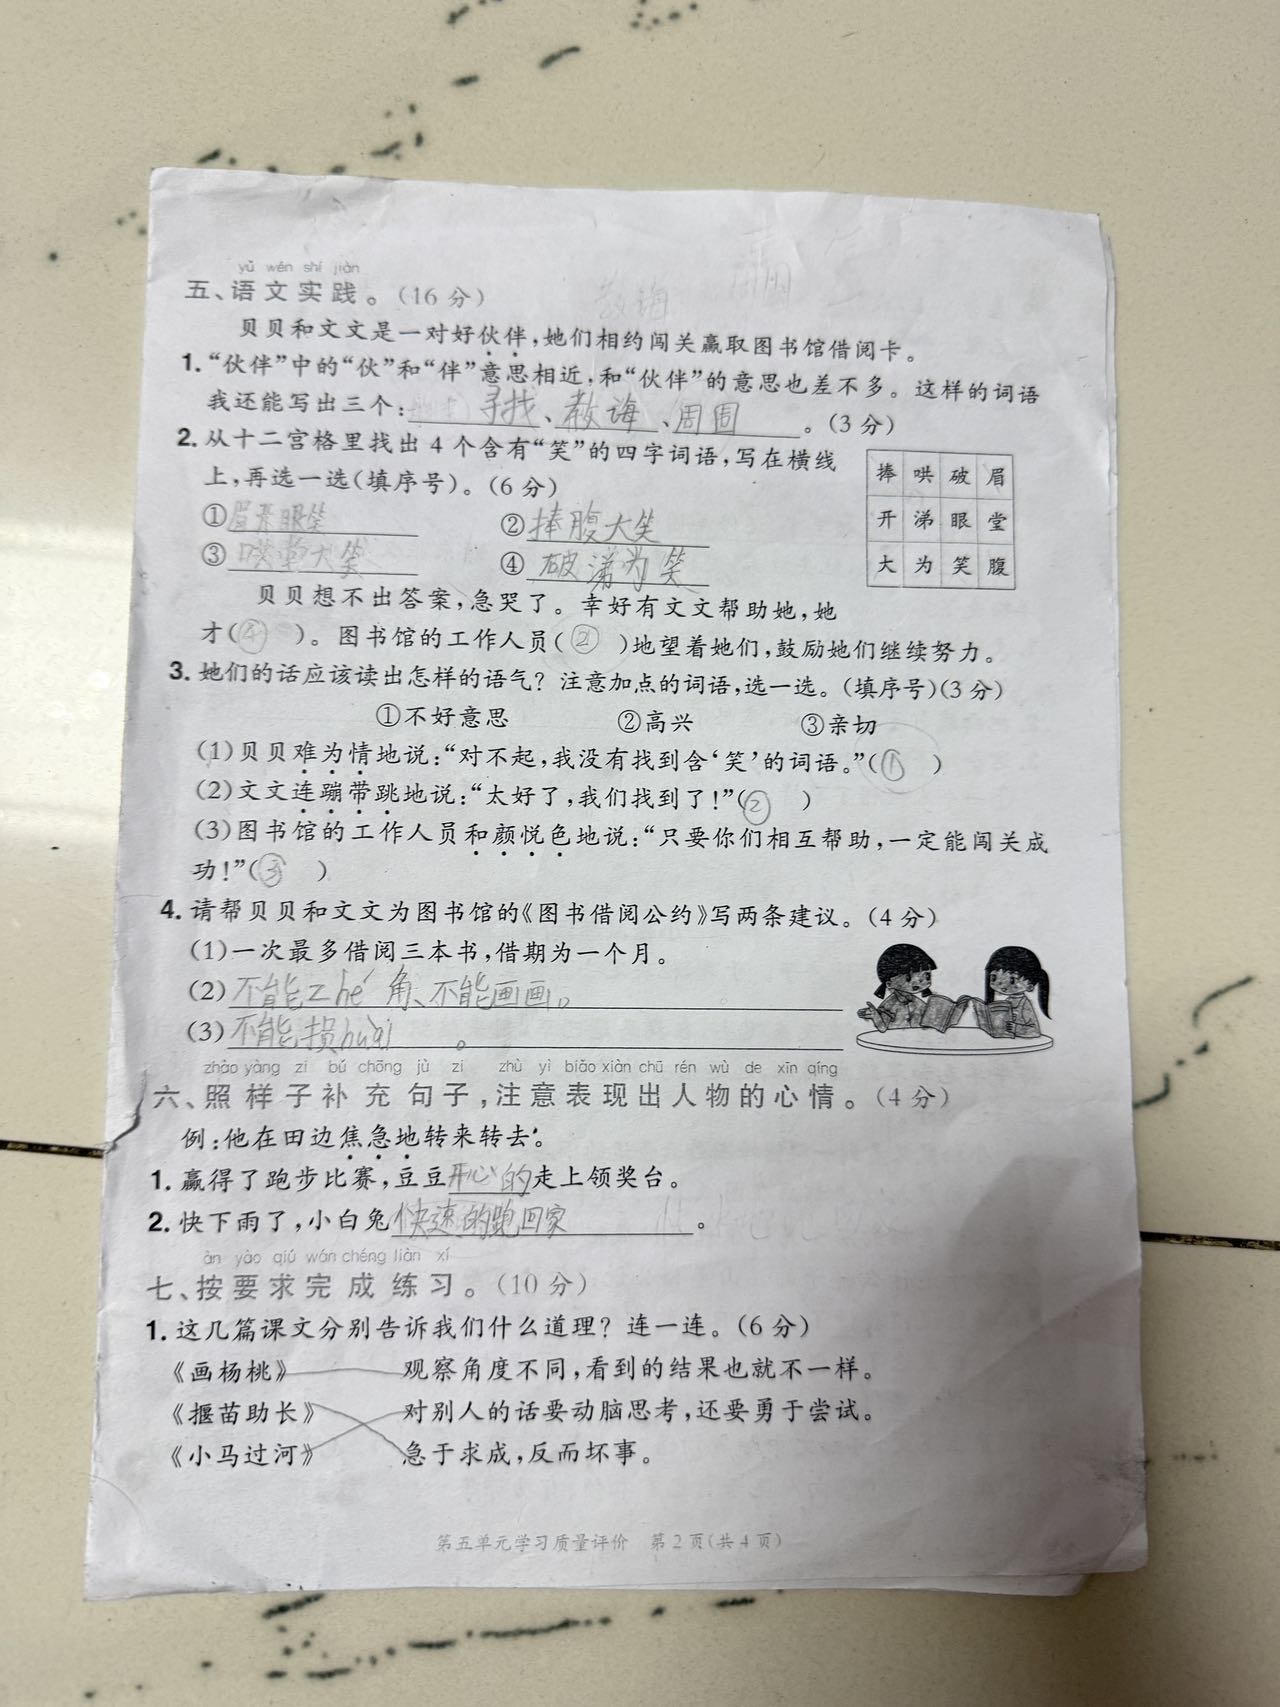 yǔ wén shí jiàn
五、语文实践。(16 分)
教诲 周围
贝贝和文文是一对好伙伴,她们相约闯关赢取图书馆借阅卡。
1.“伙伴”中的“伙”和“伴”意思相近,和“伙伴”的意思也差不多。这样的词语
我还能写出三个: 寻找、教诲、周围。(3 分)
2.从十二宫格里找出 4 个含有“笑”的四字词语,写在横线
上,再选一选(填序号)。(6 分)
捧 哄 破 眉
开 涕 眼 堂
大 为 笑 腹
①眉开眼笑 ②捧腹大笑
③哄堂大笑 ④破涕为笑
贝贝想不出答案,急哭了。幸好有文文帮助她,她
才(④)。图书馆的工作人员(②)地望着她们,鼓励她们继续努力。
3.她们的话应该读出怎样的语气？注意加点的词语,选一选。(填序号)(3 分)
①不好意思 ②高兴 ③亲切
(1)贝贝难为情地说:“对不起,我没有找到含‘笑’的词语。”(①)
(2)文文连蹦带跳地说:“太好了,我们找到了!”(②)
(3)图书馆的工作人员和颜悦色地说:“只要你们相互帮助,一定能闯关成
功!”(③)
4.请帮贝贝和文文为图书馆的《图书借阅公约》写两条建议。(4 分)
(1)一次最多借阅三本书,借期为一个月。
(2)不能zhé角、不能画画。
(3)不能损huài。
zhào yàng zi bǔ chōng jù zi zhù yì biǎo xiàn chū rén wù de xīn qíng
六、照样子补充句子,注意表现出人物的心情。(4 分)
例:他在田边焦急地转来转去。
1.赢得了跑步比赛,豆豆开心的走上领奖台。
2.快下雨了,小白兔快速的跑回家。
àn yāo qiú wán chéng liàn xí
七、按要求完成练习。(10 分)
1.这几篇课文分别告诉我们什么道理？连一连。(6 分)
《画杨桃》 观察角度不同,看到的结果也就不一样。
《揠苗助长》 对别人的话要动脑思考,还要勇于尝试。
《小马过河》 急于求成,反而坏事。
第五单元学习质量评价 第 2 页(共 4 页)